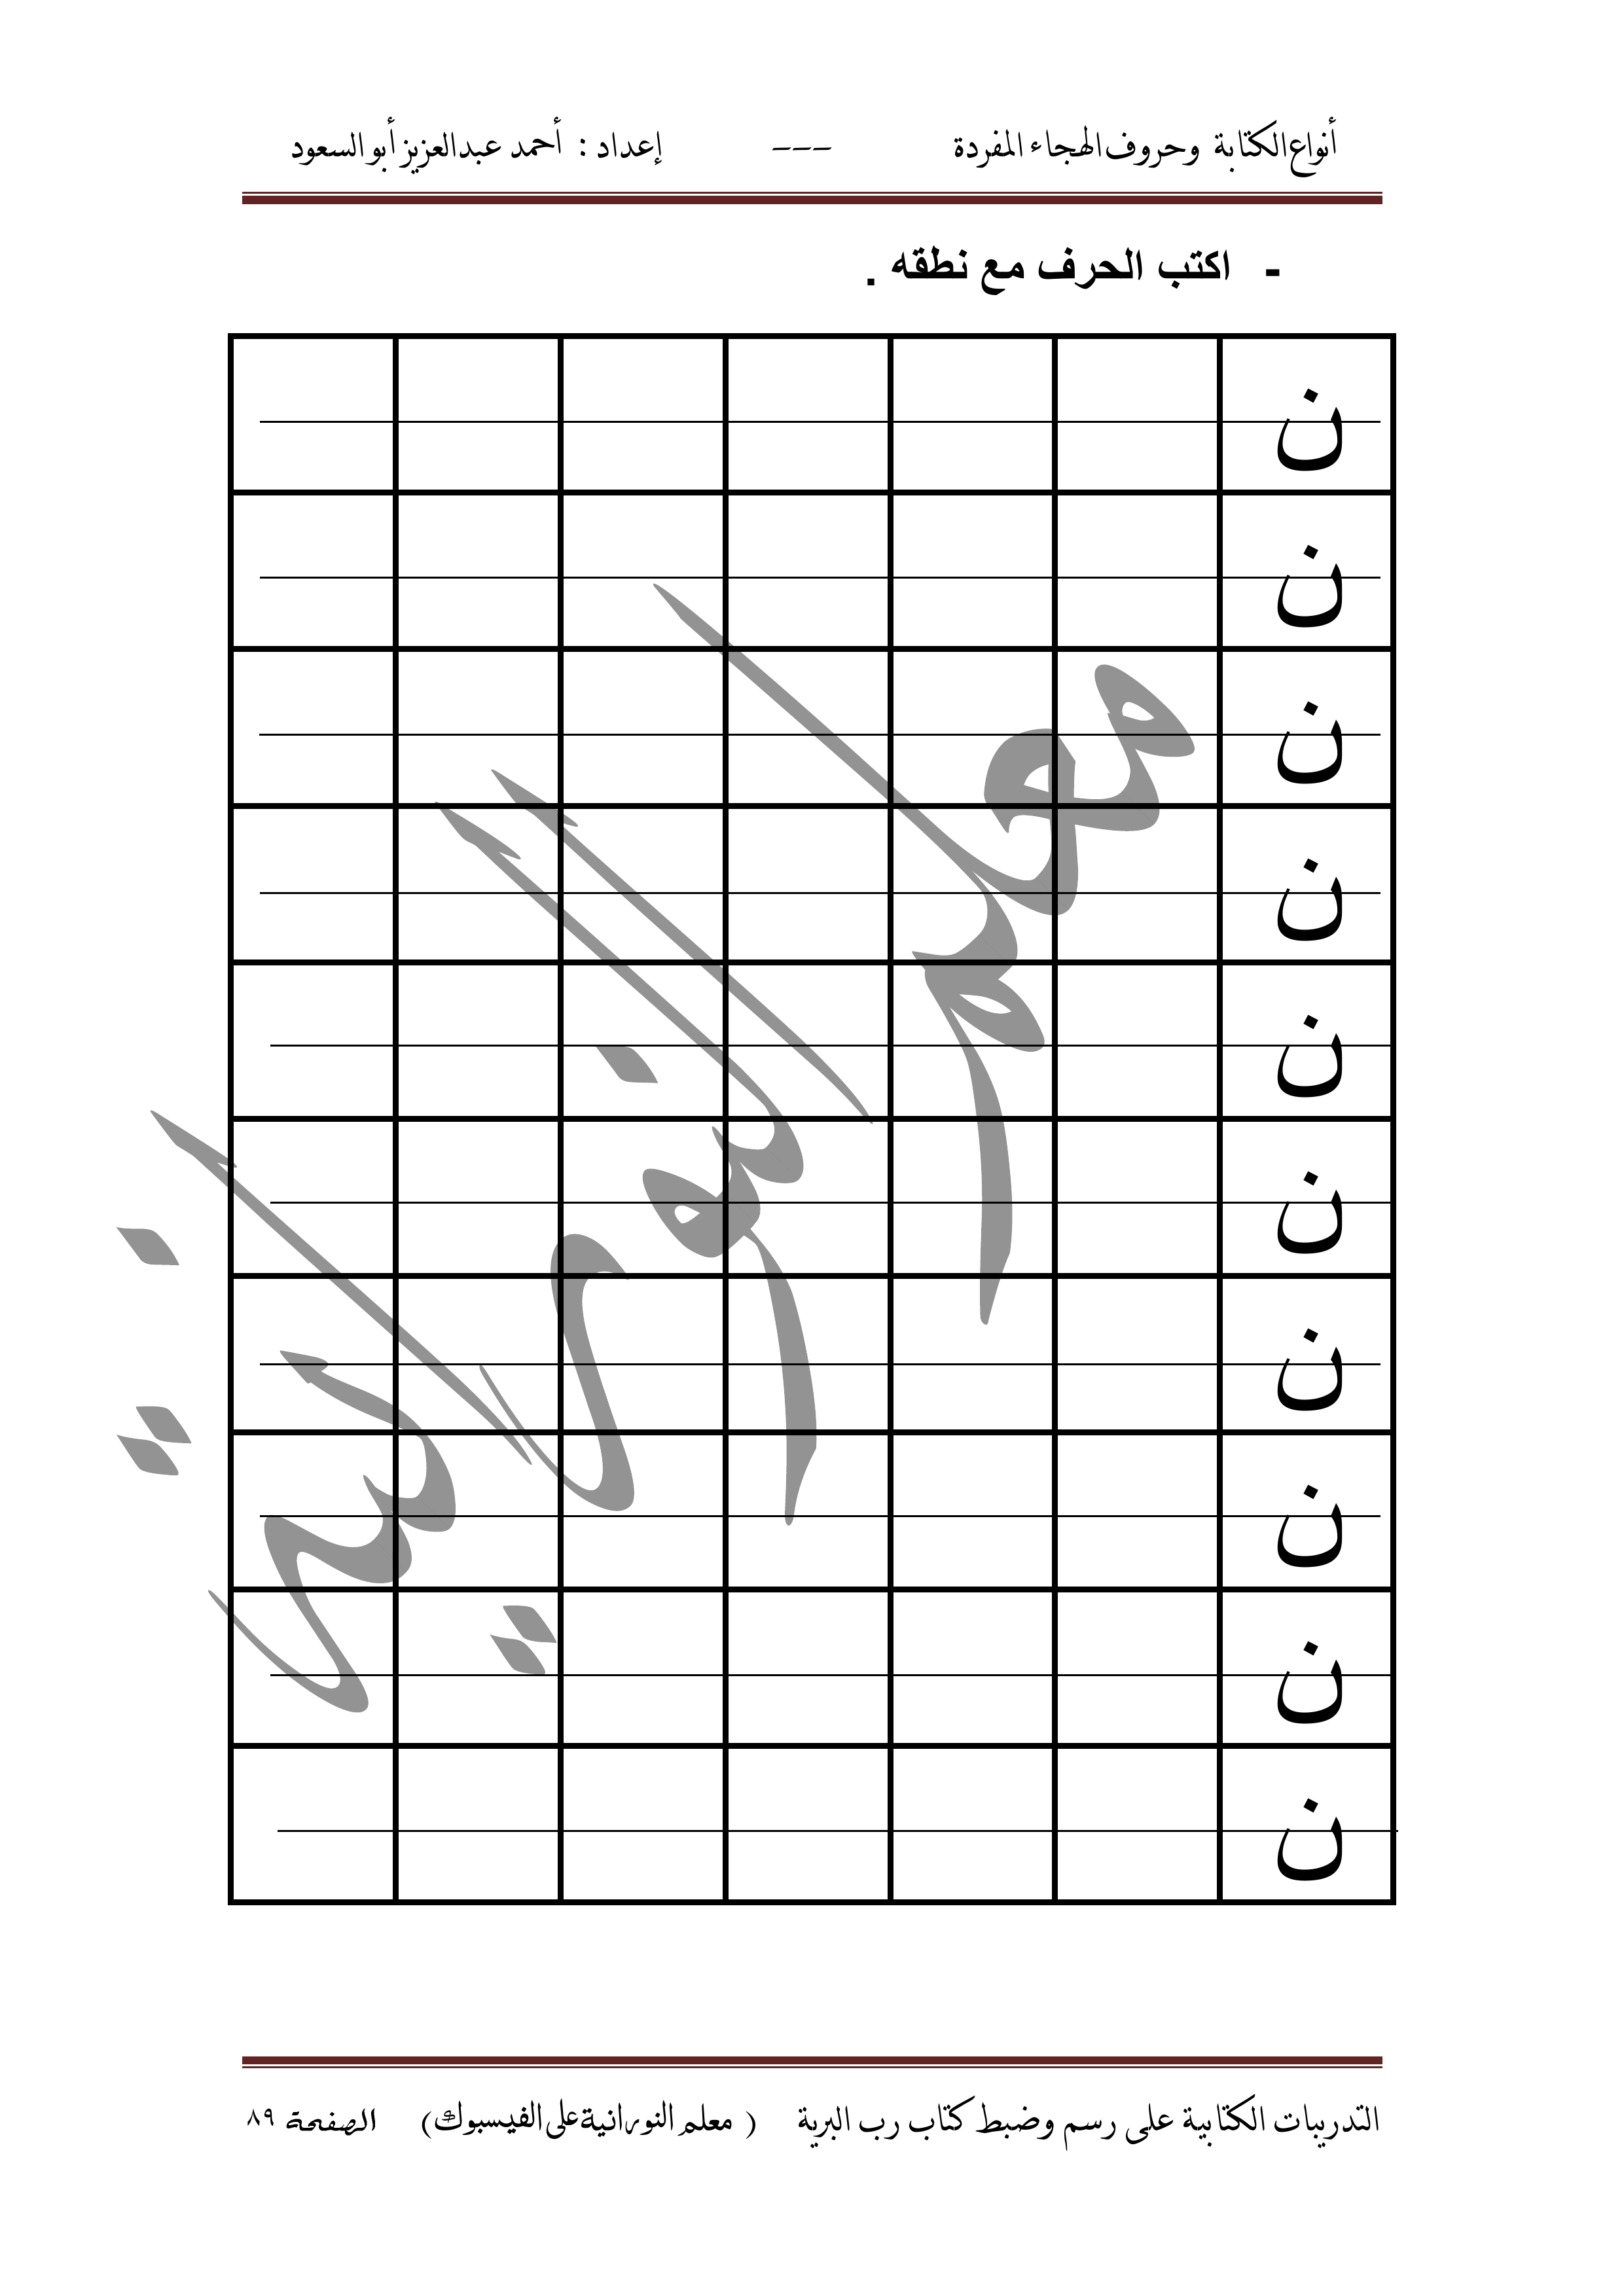 أنواع الكتابة وحروف الهجاء المفردة --- إعداد : أحمد عبدالعزيز أبو السعود
- اكتب الحرف مع نطقه .
ن
ن
ن
ن
ن
ن
ن
ن
ن
ن
معلم النورانية
التدريبات الكتابية على رسم وضبط كتاب رب البرية ( معلم النورانية على الفيسبوك) الصفحة ٨٩